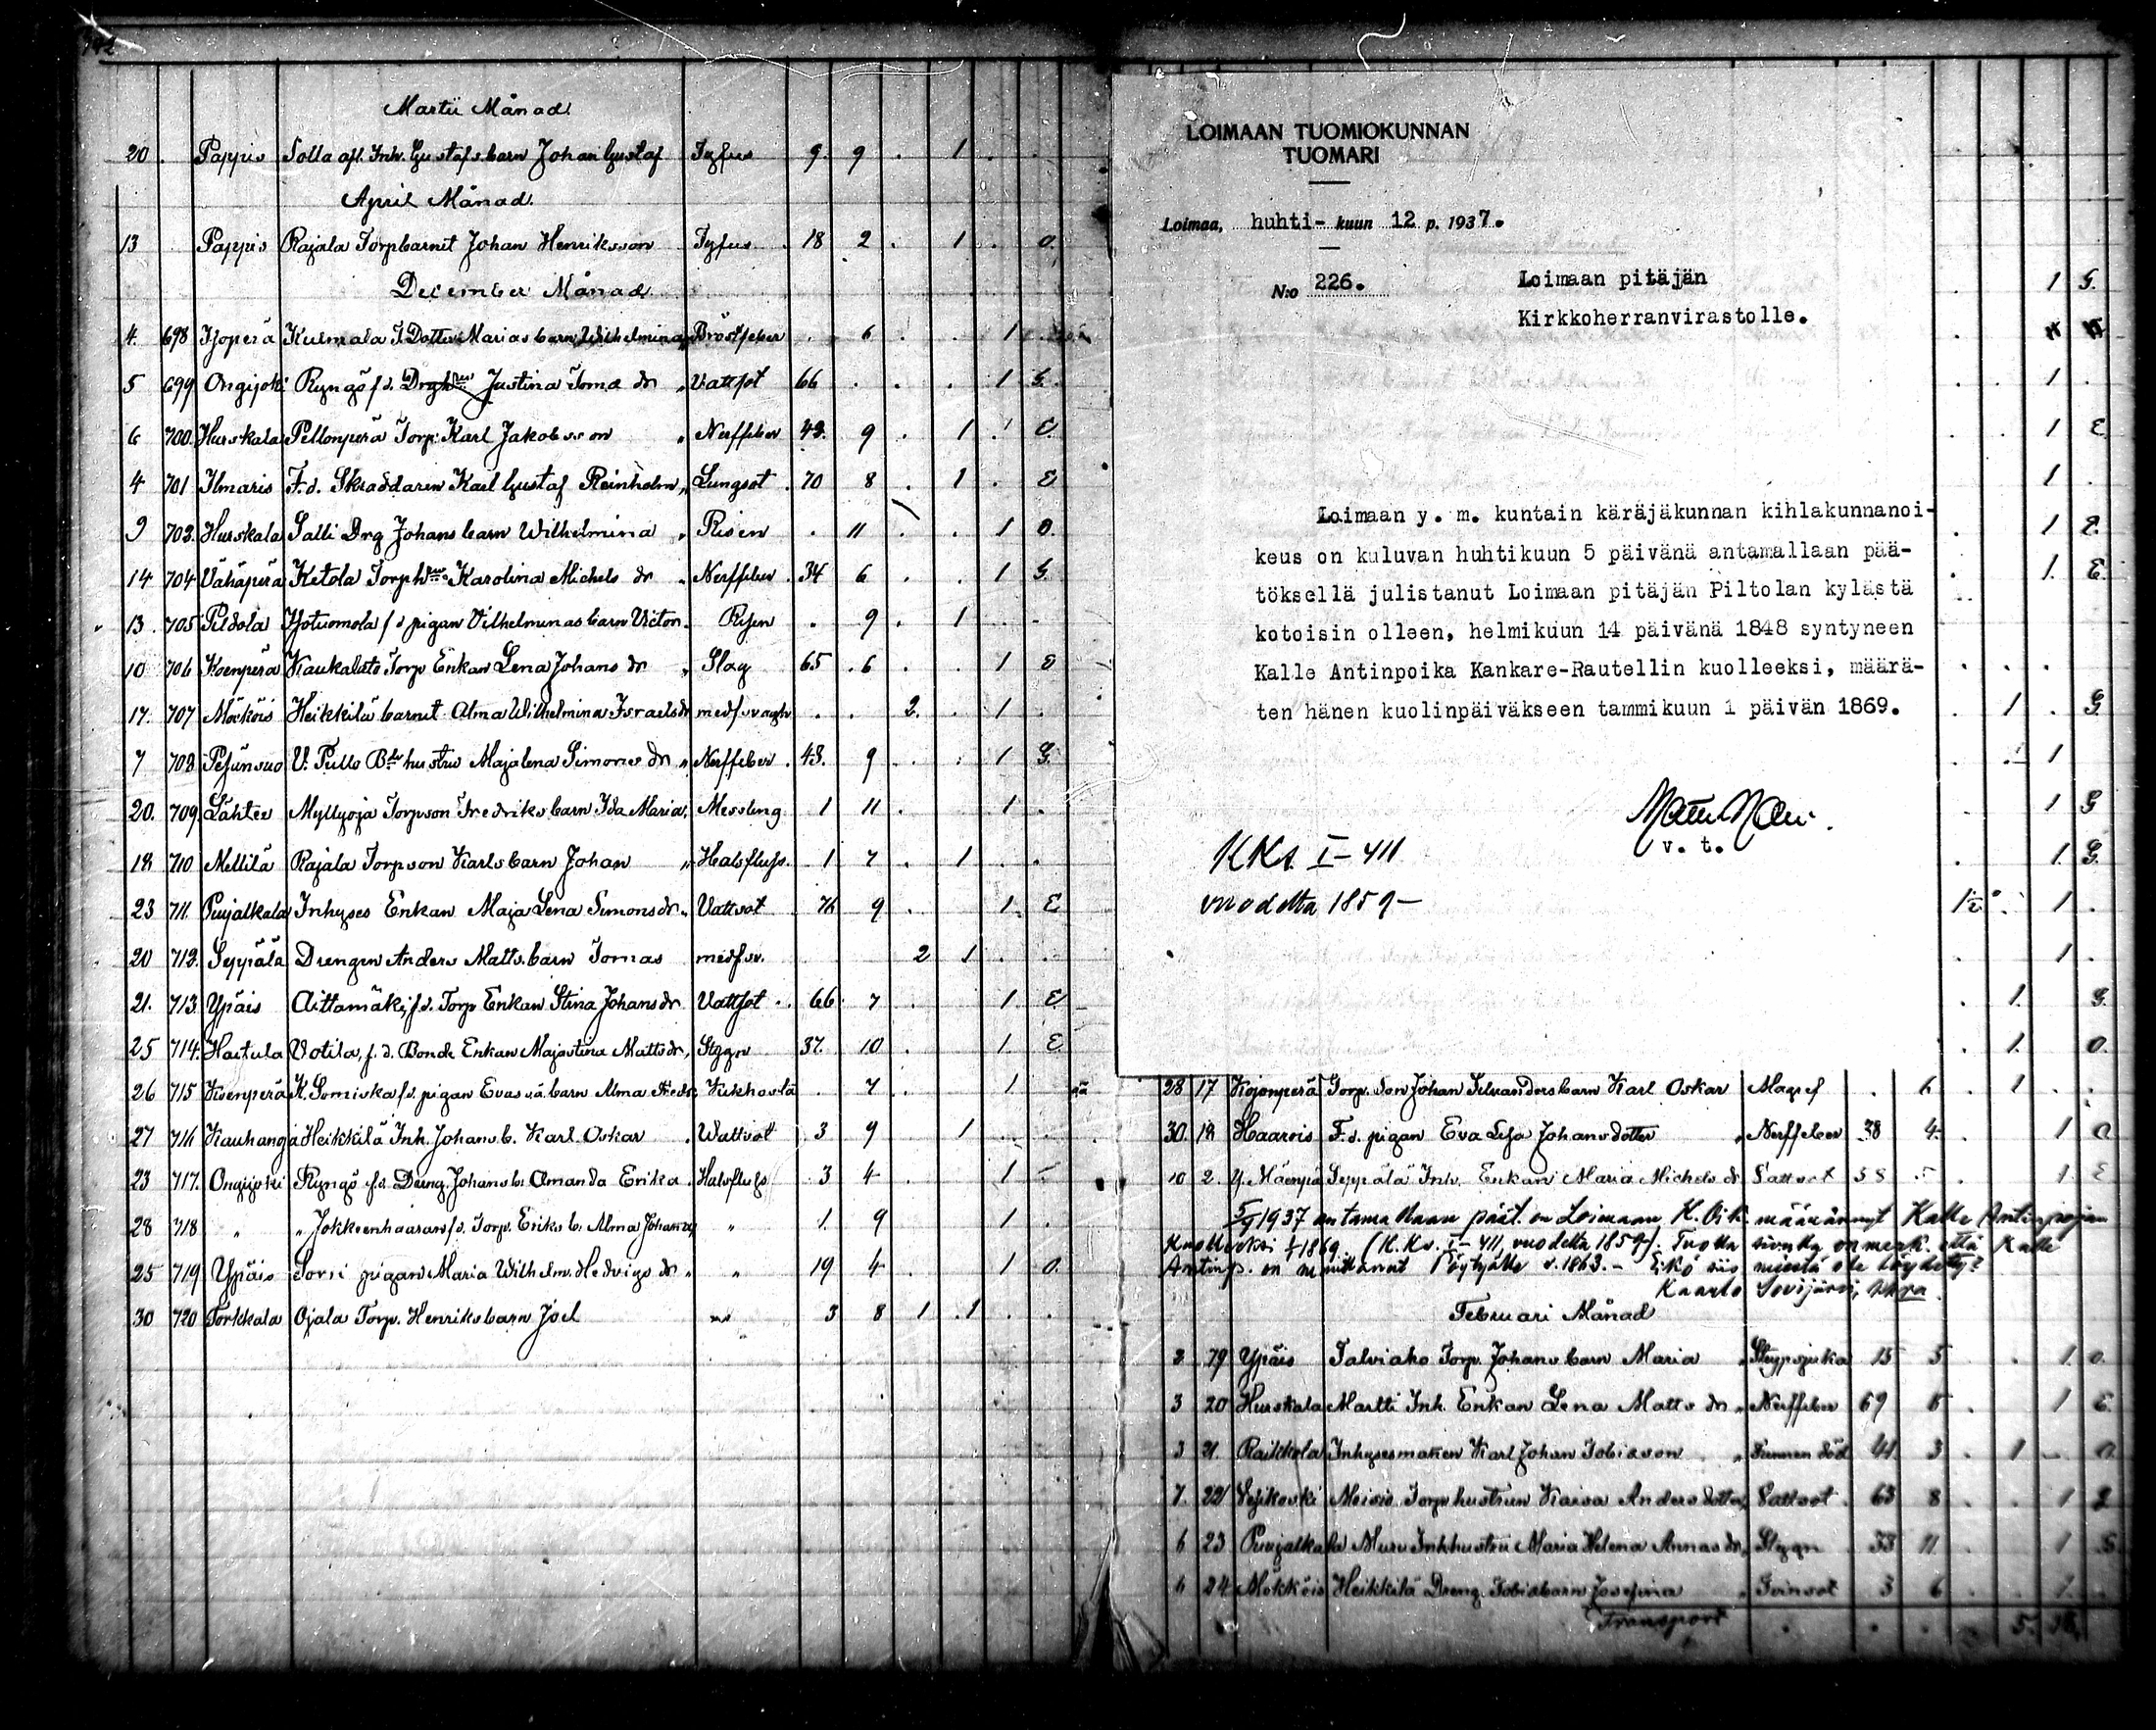 Martii Månad
20 . Pappis Solla afl. Inh. Gustafs barn Johan Gustaf Tyfus 9 9 . 1 . .
April Månad.
13 Pappis Rajala Torpbarnet Johan Henriksson Tyfus . 18 2 . 1 . O.
December Månad
4. 698 Isoperä Kulmala T. Dotter Marias barn Wilhelmina Bröstfeber . 6 . . 1
5 699 Ongijoki Ryngö f.d. Justina Toma dr " Vattsot 66 . . . 1 G.
6 700. Hurskala Pellonperä Torp. Karl Jakobsson " Nerffeber 49. 9 . 1 . E.
4 701 Ilmaris F.d. Skräddaren Karl Gustaf Reinholm " Lungsot . 70 8 . 1 . E
9 703. Hurskala Salli Drg Johans barn Wilhelmina " Risen . 11 . . 1 O.
14 704 Vähäperä Ketola Torph Karolina Michels dr " Nerffeber . 34 6 . . 1 G.
13 . 705 Pildola Isotuomola f d pigan Vilhelminas barn Victor . Risen . 9 . 1 . .
10 706 Koenperä Kaukalato Torp Enkan Lena Johans dr " Slag 65 . 6 . . 1 E
17. 707 Mäköis Heikkilä barnet Alma Wilhelmina Israelsdr medf. svagh . . 2. . 1 .
7 708 Pesänsuo V. Pullo hustru Majalena Simons dr " Nerffeber . 43. 9 . . 1 G.
20. 709. Lähtee Myllyoja Torpson Fredriks barn Ida Maria. Messling 1 11 . . 1 .
18 710 Mellilä Rajala Torpson Karls barn Johan " Halsfluss. 1 7 . 1 . .
23 711. Puujalkala Inhyses Enkan Maja Lena Simonsdr. Vattsot . 76 9 . . 1. E
20 712. Seppälä Drengen Anders Matts. barn Tomas medf sv. 2 1 . .
21. 713. Ypäis Aittamäki f.d. Torp Enkan Stina Johansdr Vattsot . 66. 7 . . 1. E
25 714. Haitula Votila, f.d. Bonde Enkan Majastina Mattsdr, Stygn 37. 10 . . 1. E
26 715 Koenperä K. Somiska f.d. pigan Evas oä. barn Alma Kikhosta . 7 . . 1. oä
27 716 Kauhanoja Heikkilä Inh. Johans b. Karl. Oskar . Wattsot . 3 9 . 1 . .
23 717. Ongijoki Ryngö f.d. Dreng. Johans b. Amanda Erika . Halsfluss . 3 4 . . 1 .
28 718 " " Jokkeenhaaran f.d. Torp. Eriks b. Alma Johanna " 1. 9 . 1 .
25 719 Ypäis Sorri pigan Maria Wilhelm. Hedvigs dr " " 19 4 . . 1 O.
30 720 Torkkala Ojala Torp. Henriks barn Joel " 3 8 1 . 1 . .
LOIMAAN TUOMIOKUNNAN
TUOMARI
Loimaa, huhti- kuun 12 p. 1937.
N:o 226.
Loimaan pitäjän
Kirkkoherranvirastolle.
Loimaan y. m. kuntain käräjäkunnan kihlakunnanoi-
keus on kuluvan huhtikuun 5 päivänä antamallaan pää-
töksellä julistanut Loimaan pitäjän Piltolan kylästä
kotoisin olleen, helmikuun 14 päivänä 1848 syntyneen
Kalle Antinpoika Kankare-Rautellin kuolleeksi, määrä-
ten hänen kuolinpäiväkseen tammikuun 1 päivän 1869.
v. t.
KKs. I - 411
vuodetta 1859 -
28 17 Kojonperä Torp. Son Johan barn Karl Oskar Magref . 6 . 1 . .
30. 18 Haarois F. d. pigan Eva Lisa Johans dotter " Nerffeber 38 4. . . 1 O
10 2. Y. Mäenpä Seppälä Inh. Enkan Maria Michels dr Vattsot 58 . . 1 E
1937 antamallaan päät. on Loimaan K. Oik. määrännyt Kalle Antinpojan
kuolleeksi 1/1 1869. (K.Ks. I - 411, vuodetta 1859). Tuolla sivulla on merk. että Kalle
Antinp. on muuttanut Pöytyälle v. 1863. - Eikö siis miestä ole löydetty?
Kaarlo Sovijärvi, khra
Februari Månad
2 19 Ypäis Salviaho Torp. Johans barn Maria " Strypsjuka 15 5 . 1. O.
3 20 Hurskala Martti Inh. Enkan Lena Matts dr " Nerffeber 69 5 . 1 E.
3 21. Raikkola Inhysesmannen Karl Johan Tobiasson " 41 3 . 1 . O
7. 22 Torp hustrun Kaisa Anders dotter Vattsot . 63 8 . . 1
6 23 Puujalkala Muru Inhhustru Maria Helena Annas dr, Stygn 33 11. . 1 .
6 24 Mäkköis Heikkilä Dreng. Tobias barn Josefina " 3 6 . . 1. .
Transport